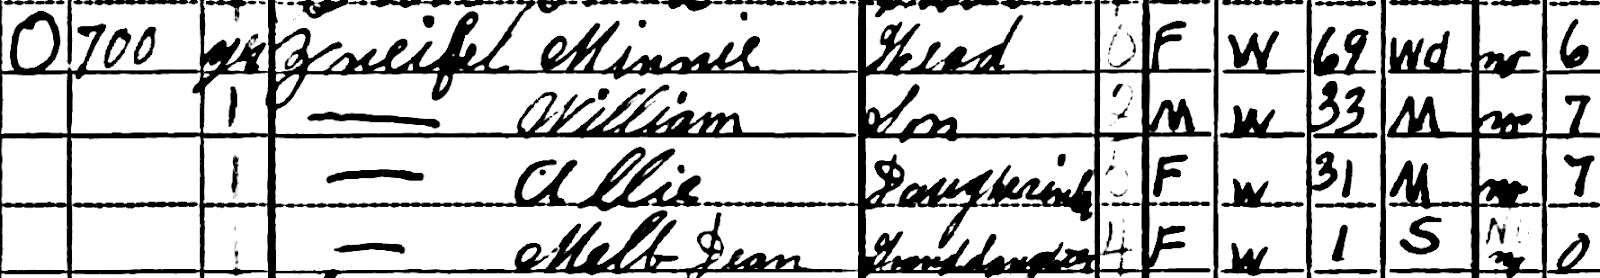 O 700 yes Zneifel Minnie Head 0 F W 69 Wd no 6
1 — William Son 2 M W 33 M no 7
1 — Allie Daughterinlaw F W 31 M no 7
1 — Melb Jean Granddaughter 4 F W 1 S no 0